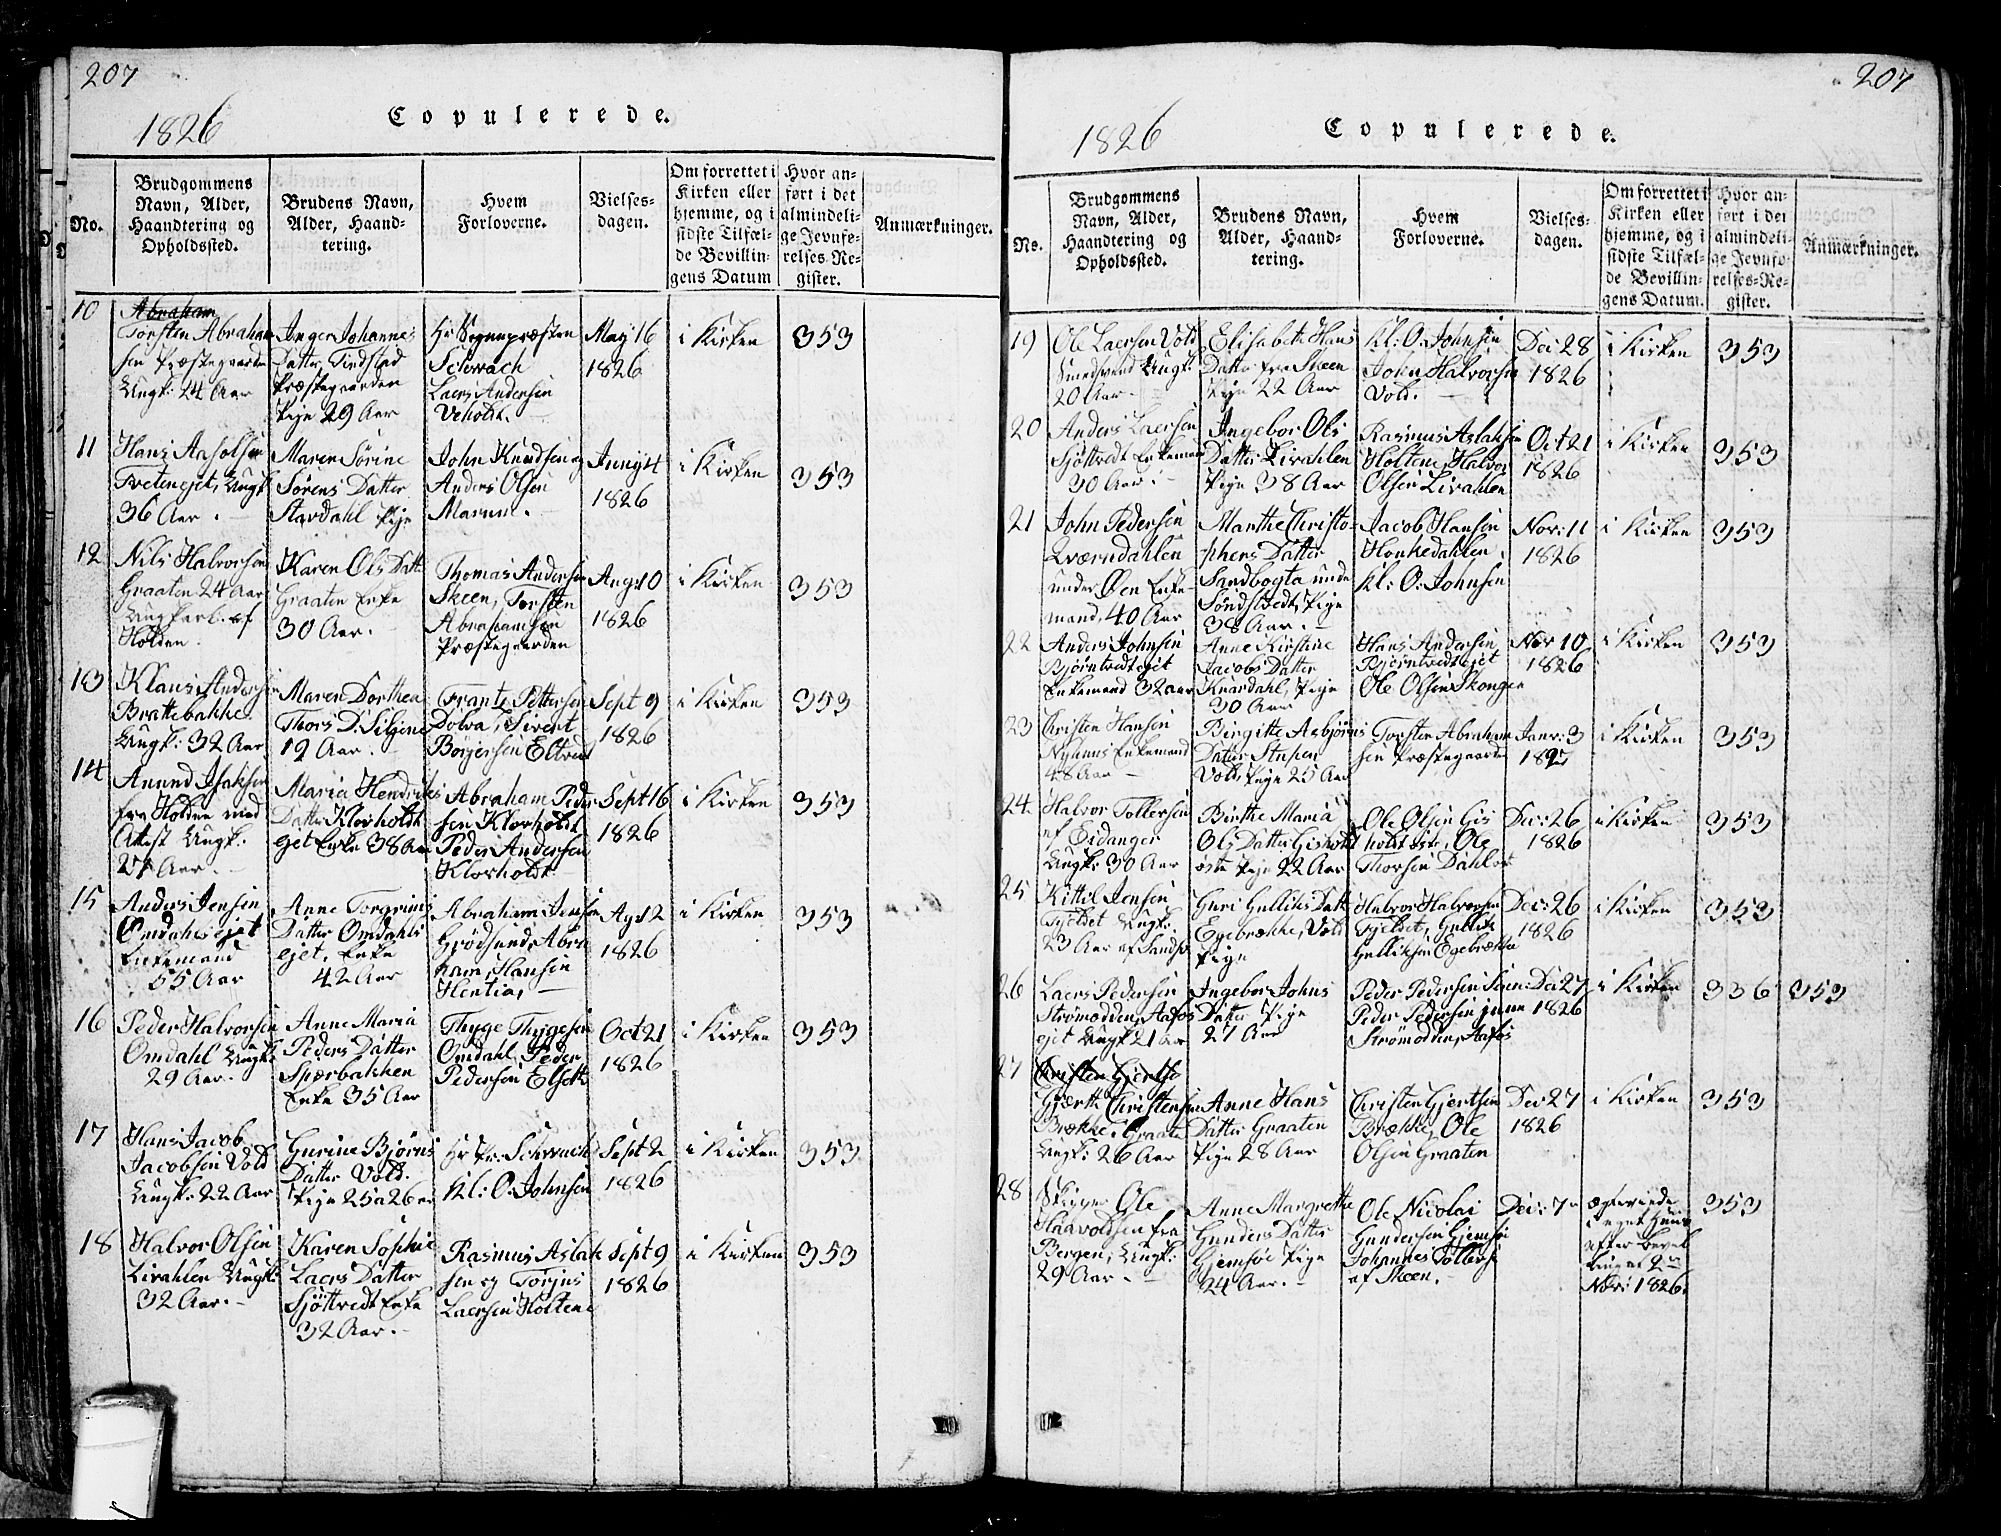 207
1826
Copulerede.
No.
Brudgommens
Navn, Alder,
Haandtering og
Opholdssted.
Brudens Navn,
Alder, Haand-
tering.
Hvem
Forloverne.
Vielses-
dagen.
Om forrettet i
Kirken eller
hjemme, og i
sidste Tilfæl-
de Bevillin-
gens Datum
Hvor an-
ført i det
almindeli-
ge Jevnfø-
relses-Re-
gister.
Anmærkninger.
10
Abraham
Torsten Abraham
sen Præstegaarden
Ungk: 24 Aar
Inger Johannes
Datter Findstad
Præstegaarden
Pige 29 Aar
Hr Sognepræsten
Schwach
Laers Andersen
Veholdt.
May 16
1826
i Kirken
353
11
Hans Aasolsen
Tvetenejet, Ungk
36 Aar.
Maren Sørine
Sørens Datter
Stavdahl Pige
John Knudsen og
Anders Olsen
Marum.
Juny 4
1826
i Kirken
353
12
Nils Halvorsen
Graaten 24 Aar
Ungkarl af
Holden
Karen Ols Datt
Graaten Enke
30 Aar.
Thomas Andersen
Skeen, Torsten
Abrahamsen
Præstegaarden
Aug: 10
1826
i Kirken
353
13
Klaus Andersen
Brattebakke
Ungk: 32 Aar
Maren Dorthea
Thors D. Siljene
19 Aar.
Frantz Pettersen
Dolva, Sivert
Borjersen Eltvedt
Sept 9
1826
i Kirken
353
14
Anund Isaksen
fra Holden med
Attest Ungk:
27 Aar.
Maria Hendriks
Datter Klovholdt
ejet Enke 38 Aar
Abraham Peder
sen Klovholdt
Peder Andersen
Klovholdt
Sept 16
1826
i Kirken
353
15
Anders Jensen
Omdahlsejet
Enkemand
55 Aar
Anne Torgrims
Datter Omdahls
ejet, Enke
42 Aar
Abraham Jensen
Grødsund, Abra
ham Hansen
Hentia,
Ag: 12
1826
i Kirken
353
16
Peder Halvorsen
Omdahl Ungk
29 Aar.
Anne Maria
Peders Datter
Spærbakken
Enke 35 Aar
Thyge Thygesen
Omdahl, Peder
Pedersen Elseth
Oct 21
1826
i Kirken
353
17
Hans Jacob
Jacobsen Vold
Ungk: 22 Aar
Gurine Bjørns
Datter Vold.
Pige 25 a 26 Aar
Hr Pr. Schwach
Kl: O: Johnsen
Sept 2
1826
i Kirken
353
18
Halvor Olsen
Livahlen Ungk:
32 Aar.
Karen Sophie
Laers Datter
Sjøttvedt Enke
32 Aar.
Rasmus Aslak
sen og Torjus
Laersen Holtene
Sept 9
1826
i Kirken
353
207
1826
Copulerede.
No.
Brudgommens
Navn, Alder,
Haandtering og
Opholdssted.
Brudens Navn,
Alder, Haand-
tering.
Hvem
Forloverne.
Vielses-
dagen.
Om forrettet i
Kirken eller
hjemme, og i
sidste Tilfæl-
de Bevillin-
gens Datum.
Hvor an-
ført i det
almindeli-
ge Jevnfø-
relses-Re-
gister.
Anmærkninger.
19
Ole Laersen Vold
Ungk:
20 Aar
Elisabeth Hans
Datter fra Skeen
Pige 22 Aar
Kl: O: Johnsen
John Halvorsen
Vold.
Dec: 28
1826
i Kirken
353
20
Anders Laersen
Sjøttvedt Enkeman
30 Aar
Ingebor Ols
Datter Livahlen
Pige 38 Aar
Rasmus Aslaksen
Holtene, Halvor
Olsen Livahlen
Oct 21
1826
i Kirken
353
21
John Pedersen
Qværndahlen
under Øen Enke-
mand, 40 Aar
Marthe Christo-
phers Datter
Sandbogta unde
Søndstedt, Pige
38 Aar.
Jacob Hansen
Honkedahlen.
Kl: O: Johnsen
Nov: 11
1826
i Kirken
353
22
Anders Johnsen
Bjørntvedtejet
Enkemand 32 Aar
Anne Kirstine
Jacobs Datter
Knardahl, Pige
30 Aar
Hans Andersen
Bjørntvedtejet
Ole Olsen Skougen
Nov 10
1826
i Kirken
353
23
Christen Hansen
Nyhuus Enkemand
48 Aar
Birgitte Asbjørns
Datter Stupen
Vold, Pige 25 Aar
Torsten Abraham
sen Præstegaarde
Janv: 3
1827
i Kirken
353
24
Halvor Tollersen
af Eidanger
Ungk: 30 Aar
Birthe Maria
Ols Datter Gisholdt
østre Pige 22 Aar
Ole Olsen Gis
holdt østre, Ole
Thorsen Dahlen
Dec: 26
1826
i Kirken
353
25
Kittil Jensen
Fjeldet Ungk:
23 Aar af Sandsv
Guri Gulliks Datt
Egebrække, Vold
Pige
Halvor Halvorsen
Fjeldet, Gullik
Gulliksen Egebrække
Dec: 26
1826
i Kirken
353
26
Laers Pedersen
Strømodden, Aafos
ejet Ungk 21 Aar
Ingebor Johns
Datter Pige
27 Aar
Peder Pedersen Sen:
Peder Pedersen june
Strømodden, Aafos
Dec 27
1826
i Kirken
336
353
27
Christen Gjertse
Gjærth Christensen
Brække, Graate
Ungk: 26 Aar
Anne Hans
Datter Graaten
Pige 28 Aar
Christen Gjertsen
Brække, Ole
Olsen Graaten
Dec: 27
1826
i Kirken
353
28
Skipper Ole
Haavoldsen fra
Bergen, Ungk:
29 Aar.
Anne Margrethe
Gunders Datter
Gjemsøe Pige
24 Aar.
Ole Nicolai
Gundersen Gjemsøe
Johannes Tollersen
af Skeen.
Dec: 7
ægteviede
i eget Huus
efter bevil
ling af 2
Nov: 1826.
353